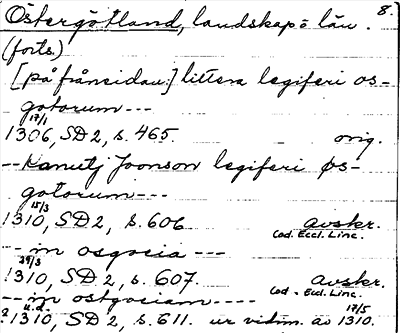 Östergötland, landskap o län. 8.
(forts.)
[på frånsidan:] littera legiferi os-
gotorum ---
17/1
1306, SD 2, s. 465. orig.
-- Kanutj Joonson legiferi øs-
gotorum ---
15/3
1310, SD 2, s. 606 avskr.
Cod. Eccl. Linc.
--- in osgocia ---
29/3
1310, SD 2, s. 607. avskr.
Cod. Eccl. Linc.
--- in ostgociam ----
u.d. 17/5
1310, SD 2, s. 611. ur vidim. av 1310.